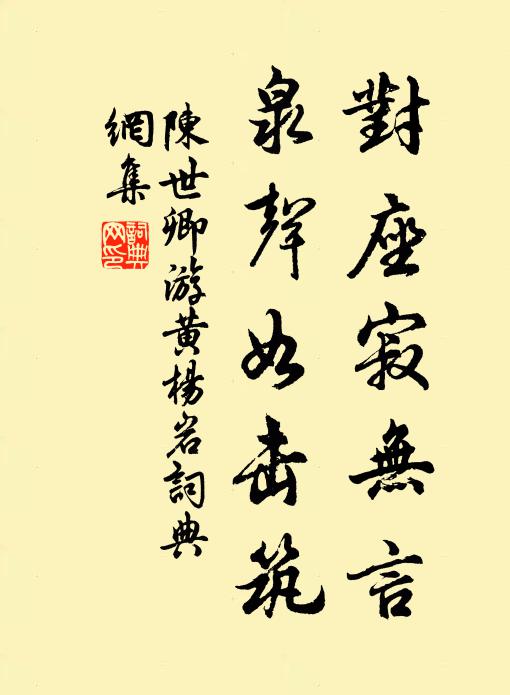 對座寂無言
泉聲如击筑
陳世卿游黃楊岩詞典
網集
詞典
网印